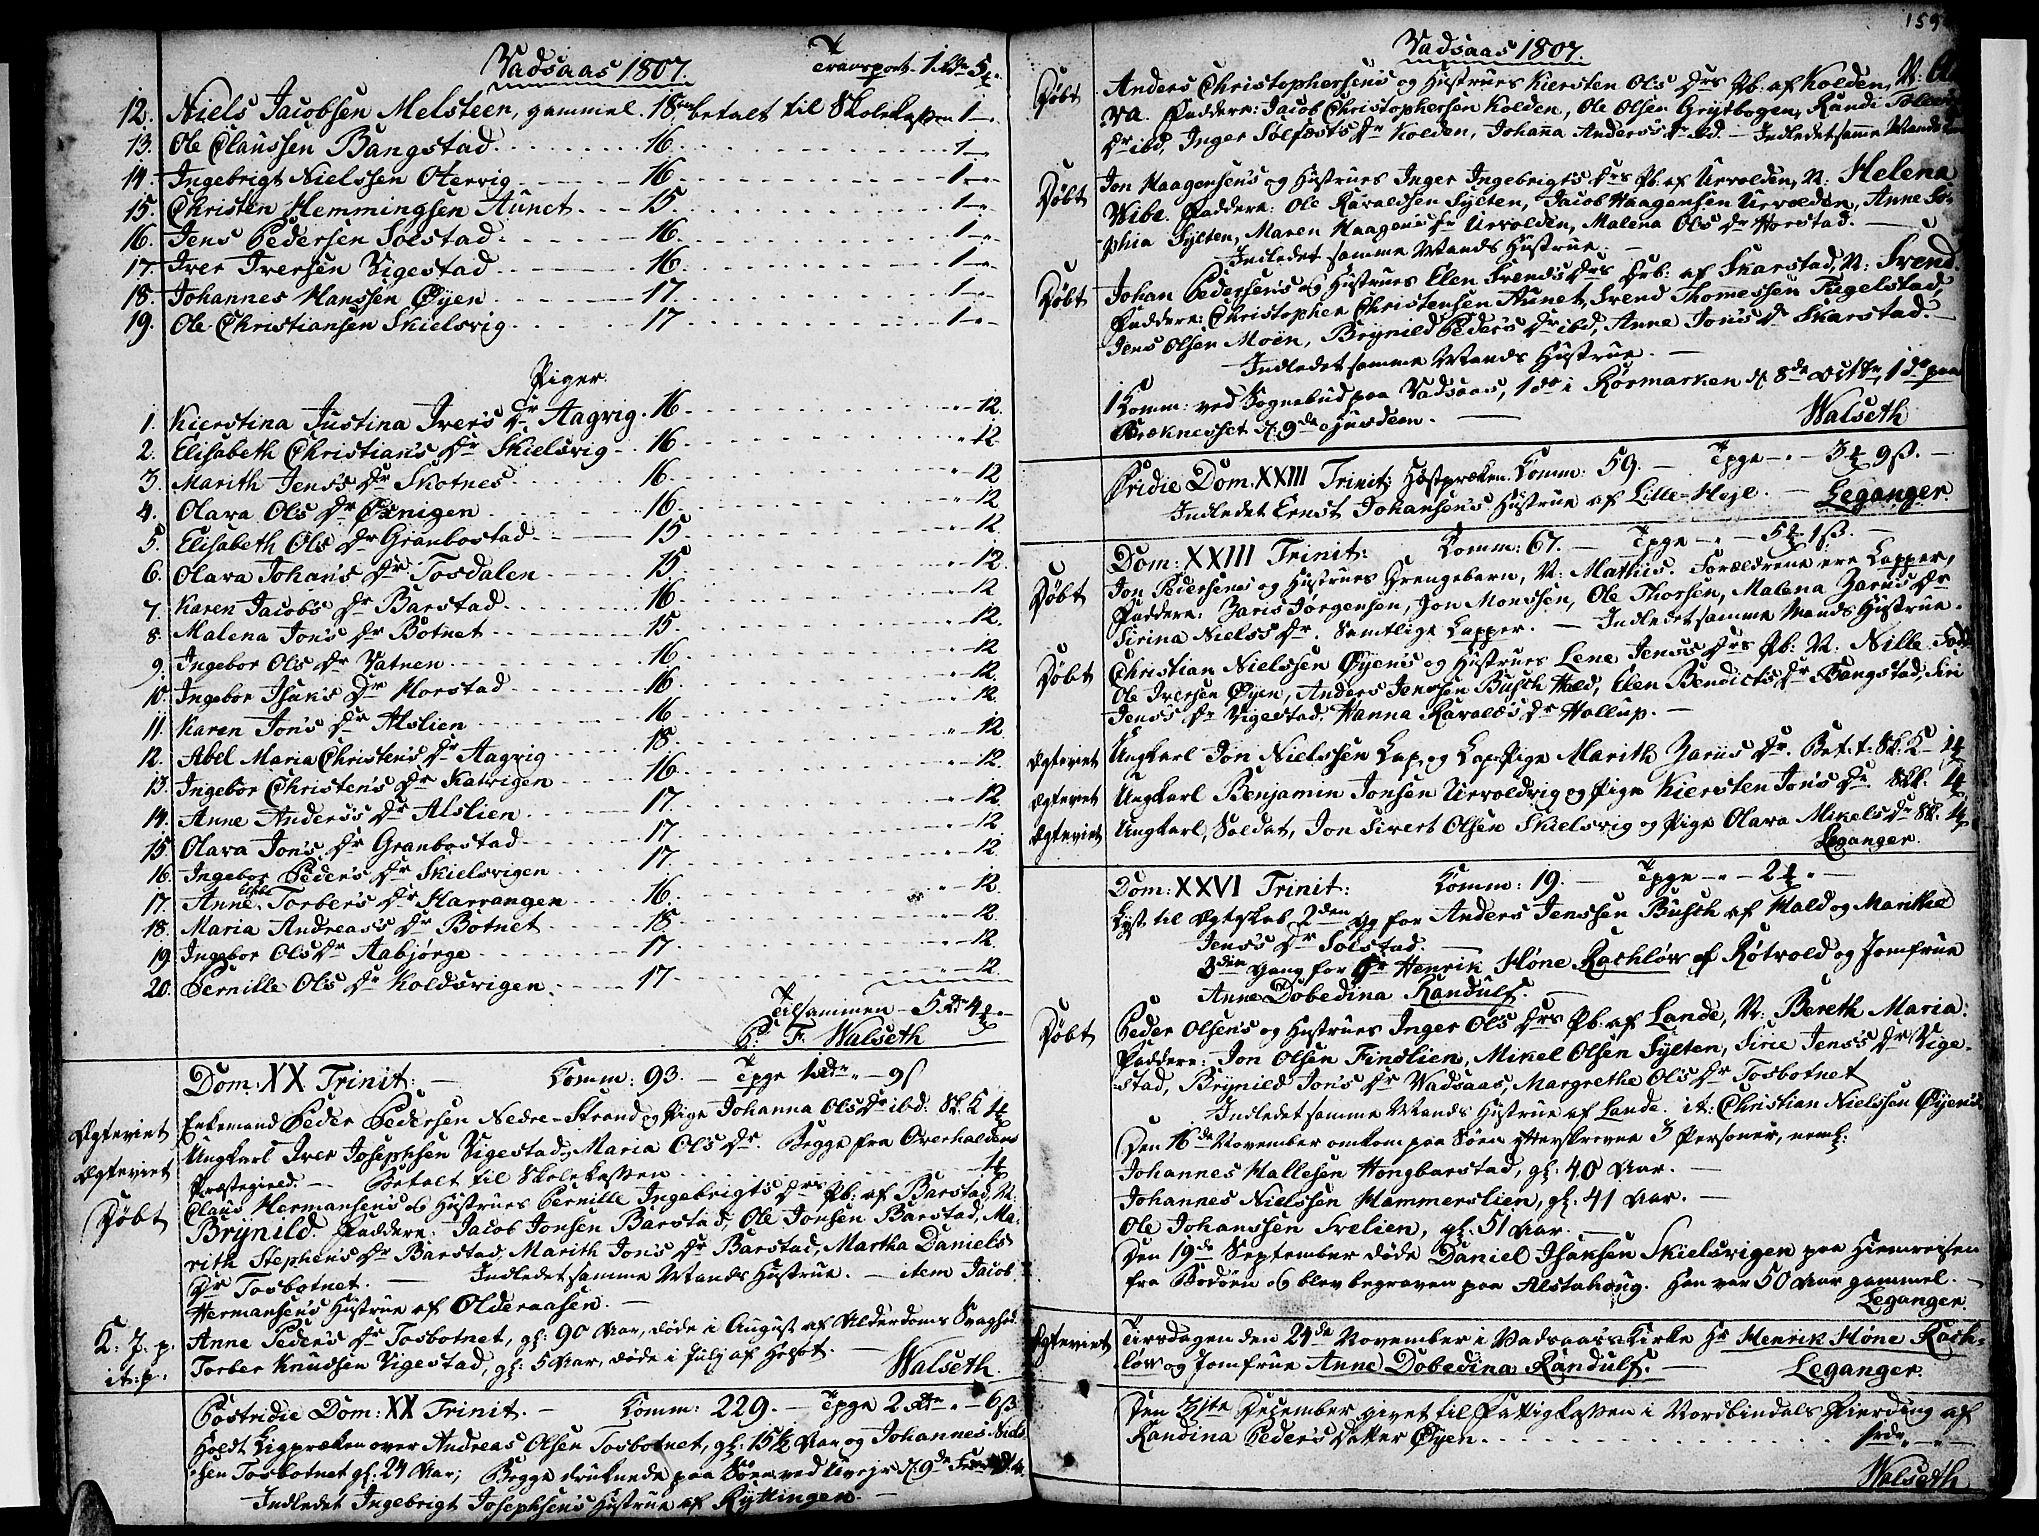 Vadsaas 1807. Transport 1 Rdr 5
12. Niels Jacobsen Melsteen, gammel 18 Aar betalt til Skolekassen 1
13. Ole Claussen Bangstad 16 1
14. Ingebrigt Nielssen Otervig 16 1
15. Christen Hemmingsen Aunet 15 1
16. Jens Pedersen Solstad 16 1
17. Iver Iversen Vigestad 16 1
18. Johannes Hanssen Øyen 17 1
19. Ole Christiansen Skielsvig 17 1
Piger.
1. Kierstina Justina Ivers Dr Aagvig 16 12.
2. Elisabeth Christians Dr Skielsvig 16 12
3. Marith Jens's Dr Skotnes 16 12
4. Olava Ols Dr Øxnigen 16 12
5. Elisabeth Ols Dr Granbostad 15 12
6. Olava Johan's Dr Tosdalen 15 12
7. Karen Jacob's Dr Barstad 16 12
8. Malena Jon's Dr Botnet 15 12.
9. Ingebor Ols Dr Vatnen 16 12
10. Ingebor Isak's Dr Horstad 16 12.
11. Karen Jon's Dr Alslien 16 12.
12. Abel Maria Christen's Dr Aagvig 18 12.
13. Ingebor Christen's Dr Kalvigen 16 12.
14. Anne Anders's Dr Alslien 17 12.
15. Olava Jon's Dr Granbostad 17 12.
16. Ingebor Peder's Dr Skielsvigen 17 12.
17. Anne Torber's Dr Harrangen 16 12.
18. Maria Andreas's Dr Botnet 18 12.
19. Ingebor Ols Dr Aabjørge 17 12.
20. Pernille Ols Dr Koldsvigen 17 12.
Tilsammen 5 Rd 4
P. F. Walseth
Dom: XX Trinit: Komm: 93. Tpge 1 Rdr 9 s
Ægteviet Enkemand Peder Pedersen Nedre-Strand og Pige Johanna Ols Dr ibd: Sk. K
Ægteviet Ungkarl Iver Josephsen Vigestad, Maria Ols Dr. Begge fra Overhaldens
Præstegield. Betalt til Skolekassen
Døbt Claus Hermansen's og Hustrues Pernille Ingebrigts Drs Pb: af Barstad, N.
Brynild. Faddere: Jacob Jonsen Barstad, Ole Jonsen Barstad, Ma-
rith Stephen's Dr Barstad, Marith Jon's Dr Barstad, Martha Daniels
Dr Tosbotnet. Indledet samme Mands Hustrue. item Jacob
Hermansen's Hustrue af Olderaasen.
K. J. p. Anne Peder's Dr Tosbotnet, gl: 90 Aar, døde i August af Alderdoms Svaghed.
it: p. Torber Knudsen Vigestad, gl: 5 Aar, døde i Julj af Hosot. Walseth.
Postridie Dom: XX Trinit. Komm: 229. Tpge 2 Rdr 6 ß
Holdt Ligpræken over Andreas Olsen Tosbotnet, gl: 15½ Aar og Johannes Niels-
sen Tosbotnet gl: 24 Aar; Begge druknede paa Søen ved Uvejr d: 9de
Indledet Ingebrigt Josephsen's Hustrue af Kyttingen.
159
Vadsaas 1807.
Døbt Anders Christophersen's og Hustrues Kiersten Ols Drs Pb. af Kolden, N:
va. Faddere: Jacob Christophersen Kolden, Ole Olsen Grytbogen, Randi
Dr ibd, Inger Solfæst's Dr Kolden, Johanna Anders's Dr ibd. Indledet samme Mands
Døbt Jon Haagensen's og Hustrues Inger Ingebrigt's Drs Pb. af Urvolden, N: Helena
Wibe. Faddere: Ole Haraldsen Sylten, Jacob Haagensen Urvolden, Anne So-
phia Sylten, Maren Haagens Dr Urvolden, Malena Ols Dr Horstad.
Indledet samme Mands Hustrue.
Døbt Johan Pedersen's og Hustrues Elen Svends Drs Drb: af Skarstad, N: Svend.
Faddere: Christopher Christensen Aunet, Svend Thommessen Fugelstad,
Jens Olsen Moen, Brynild Peder's Dr ibd, Anne Jon's Dr Skarstad.
Indledet samme Mands Hustrue.
1 Komm: ved Sognebud paa Vadsaas, 1 do i Rørmarken d: 8de Octbr, 1 do paa
Bræknesset d: 9de ejusdem. Walseth
Pridie Dom. XXIII Trinit: Høstpræken. Komm: 59. Tpge 3 9 ß.
Indledet Ernst Johansen's Hustrue af Lille-Heje. Leganger.
Dom: XXIII Trinit: Komm: 67. Tpge 5 1 ß.
Døbt Jon Pedersens og Hustrues Drengebarn, N: Mathis. Forældrene ere Lapper,
Faddere: Zaris Jørgensen, Jon Monssen, Ole Thorsen, Malena Zarius Dr
Sirina Niels's Dr. Samtlige Lapper. Indledet samme Mands Hustrue.
Døbt Christian Nielssen Øyen's og Hustrues Lene Jens's Drs Pb: N: Nille
Ole Iversen Øyen, Anders Jenssen Busch Hald, Elen Bendicts Dr Bangstad, Siri
Jens's Dr Vigestad, Hanna Haralds Dr Hollup.
Ægteviet Ungkarl Jon Nielssen Lap, og Lap-Pige Marith Zarius Dr. Bet: t: Sk: K
Ægteviet Ungkarl Benjamin Jonsen Urvoldvig og Pige Kiersten Jon's Dr Sk.
Ægteviet Ungkarl, Soldat, Jon Sivert Olsen Skielsvig og Pige Olava Mikels Dr Sk.
Leganger.
Dom: XXVI Trinit: Komm: 19. Tpge 2
Lyst til Ægteskab 2den Gg for Anders Jenssen Busch af Hald og Marithe
Jens's Dr Solstad.
3die Gang for Sr Henrik Høne Rachløw af Røtvold og Jomfrue
Anne Dobedina Randulf.
Døbt Peder Olsen's og Hustrues Inger Ols Drs Pb: af Lande, N: Bereth Maria.
Faddere: Jon Olsen Finslien, Mikel Olsen Sylten, Sirie Jens's Dr Vige-
stad, Brynild Jon's Dr Vadsaas, Margrethe Ols Dr Tosbotnet
Indledet samme Mands Hustrue af Lande. it: Christian Nielssen Øyen's
Den 16de November omkom paa Søen efterskrevne 3 Personer, neml:
Johannes Hallesen Hongbarstad, gl: 40 Aar.
Johannes Nielssen Hammerslien, gl: 41 Aar.
Ole Johanssen Svelien, gl: 51 Aar.
Den 19de September døde Daniel Isaksen Skielsvigen paa Hiemreisen
fra Bodøen og blev begraven paa Alstahoug. Han var 50 Aar gammel.
Leganger.
Ægteviet Tirsdagen den 24de November i Vadsaas Kirke Hr Henrik Høne Rach-
løw og Jomfrue Anne Dobedina Randulf. Leganger.
Den 31te December givet til Fattigkassen i Nordbindals Fierding af
Randina Peder's Datter Øyen 1 rdr
Walseth